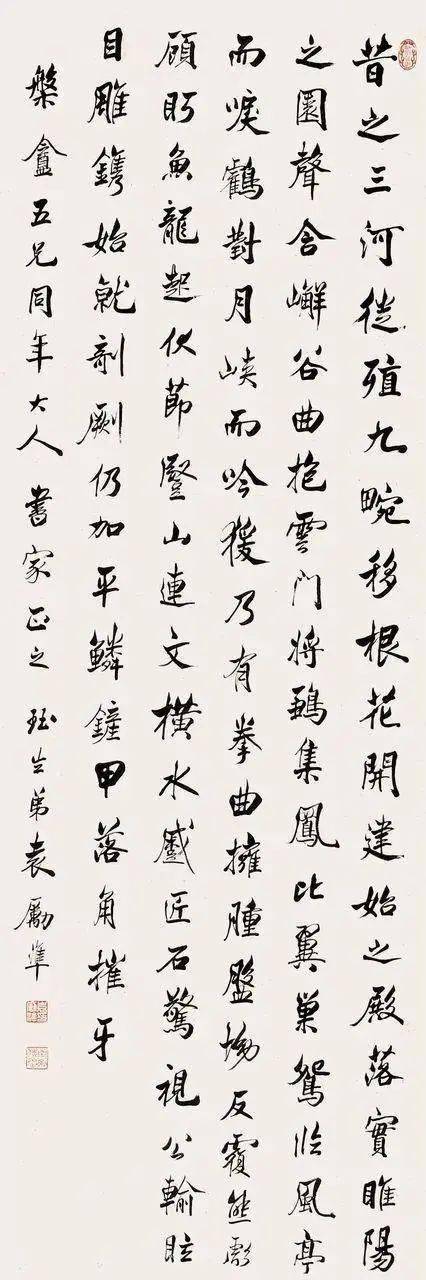 昔之三河徙殖九畹移根花開建始之殿落實睢陽
之園聲含嶰谷曲抱雲門將鶵集鳳比翼巢鴛臨風亭
而唳鶴對月峽而吟猨乃有拳曲擁腫盤坳反覆熊彪
顧眄魚龍起伏節豎山連文橫水蹙匠石驚視公輸眩
目雕鐫始就剞劂仍加平鱗鏟甲落角摧牙
槃盦五兄同年大人 書家正之 珏生弟袁勵準